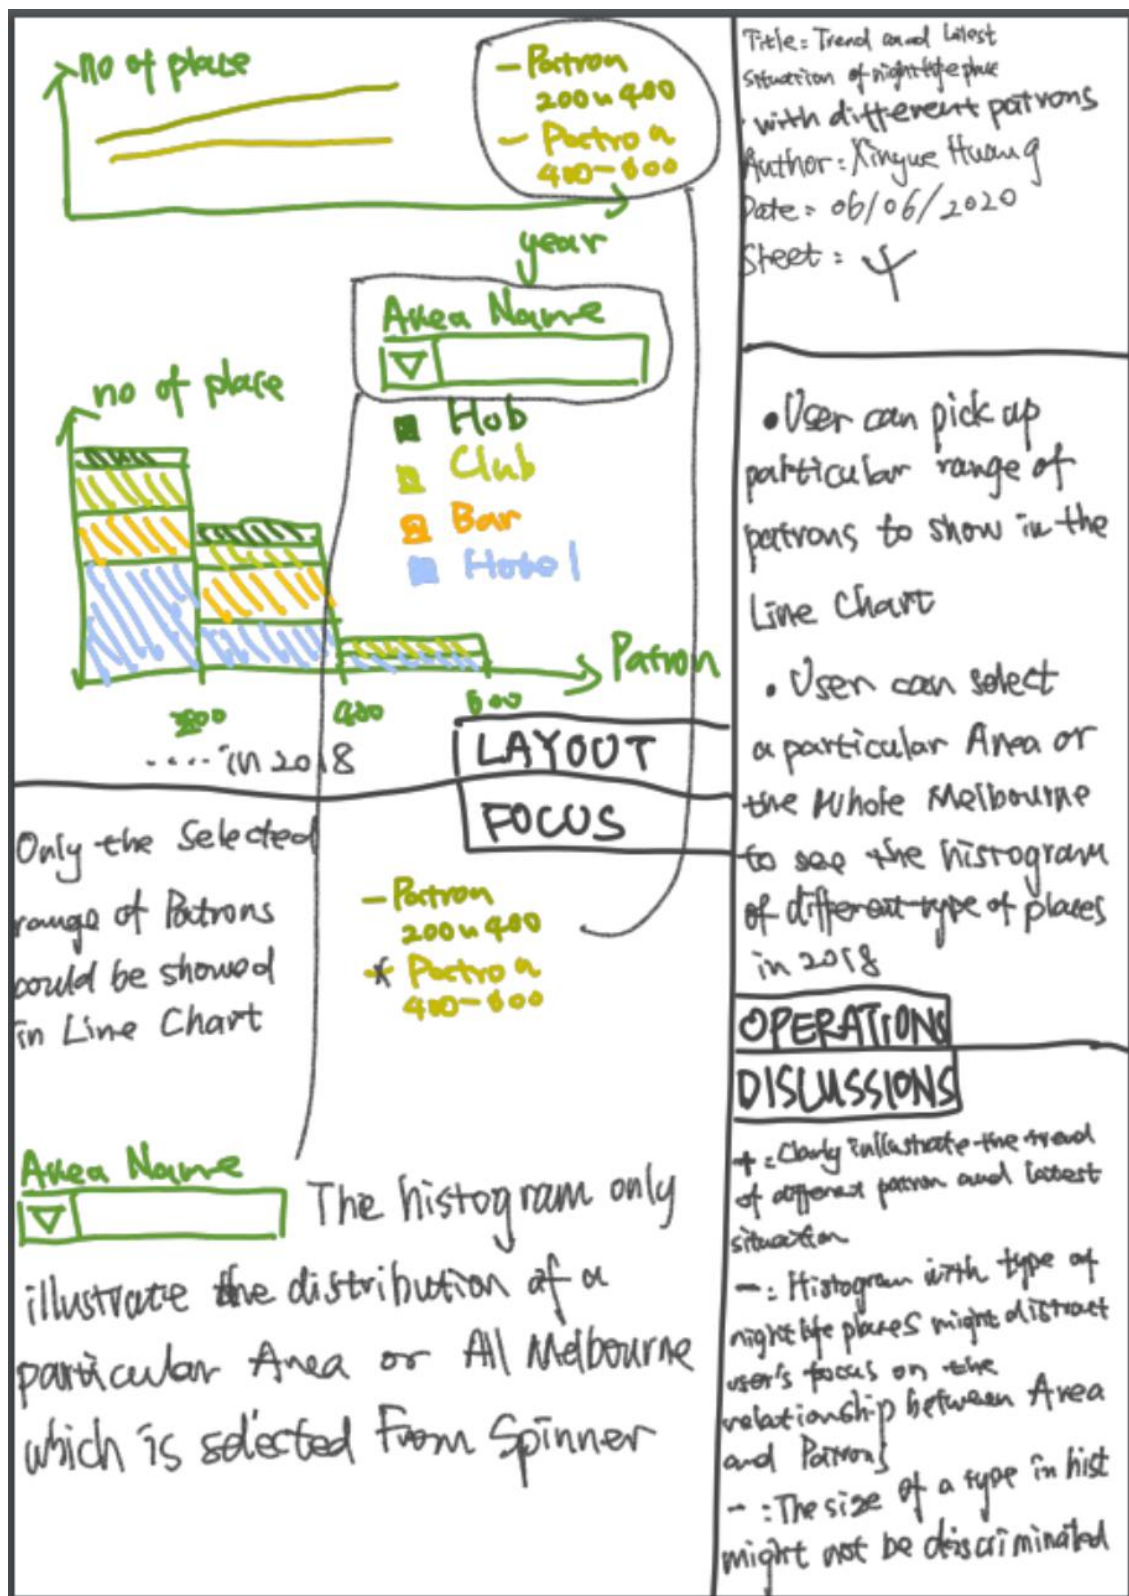 no of place
- Patron
200 ~ 400
- Patron
400-600
year
Area Name
no of place
Hob
Club
Bar
Hotel
Patron
200
400
600
.... in 2018
LAYOUT
FOCUS
Only the Selected
range of Patrons
could be showed
in Line Chart
- Patron
200 ~ 400
Patron
400-600
Area Name
The histogram only
illustrate the distribution of a
particular Area or All Melbourne
which is selected From Spinner
Title: Trend and latest
situation of nightlife place
with different patrons
Author: Xinyue Huang
Date: 06/06/2020
Sheet: 4
• User can pick up
particular range of
patrons to show in the
Line Chart
• User can select
a particular Area or
the Whole Melbourne
to see the histogram
of different type of places
in 2018
OPERATIONS
DISCUSSIONS
+ : illustrate the trend
of different patron and latest
situation
- : Histogram with type of
nightlife places might distract
user's focus on the
relationship between Area
and Patrons
- : The size of a type in hist
might not be discriminated